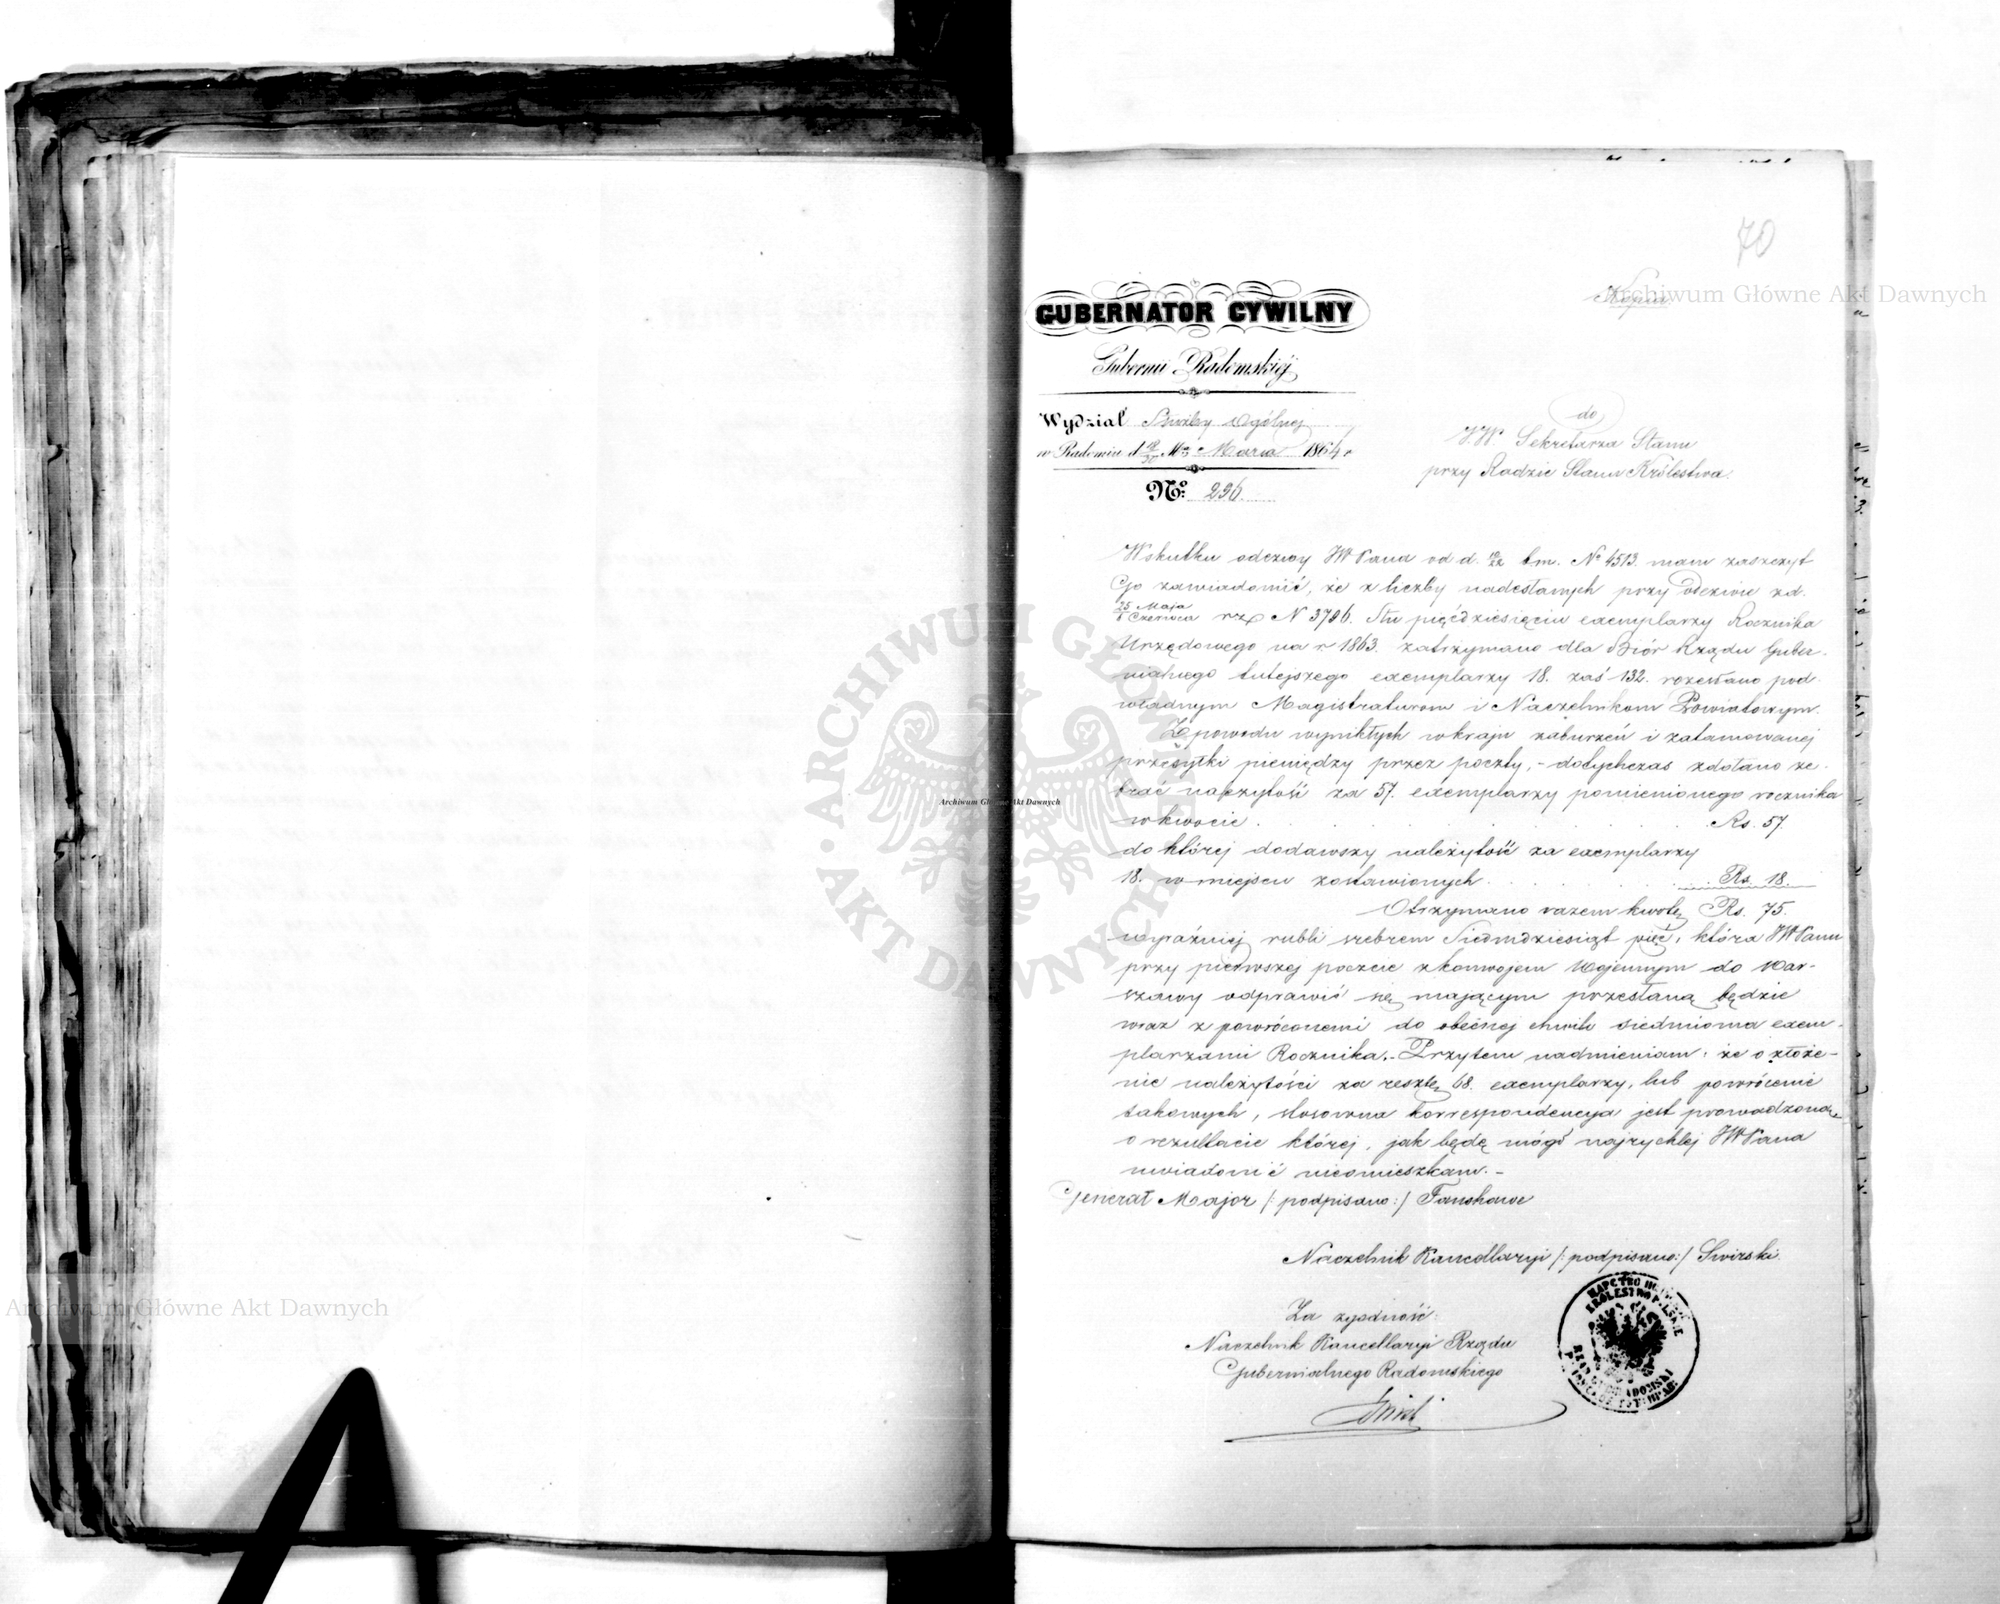 70
Kopia
GUBERNATOR CYWILNY
Gubernii Radomskiéj
do
Wydział Służby Ogólnej
JW. Sekretarza Stanu
w Radomiu d. 18/30 Mca Marca 1864 r.
przy Radzie Stanu Królestwa.
No. 296.
Wskutku odezwy JWPana od d. 10/22 b.m. No 4513. mam zaszczyt
Go zawiadomić, że z liczby nadesłanych przy odezwie z d.
25 Maja
6 Czerwca rz. N 3706. Stu pięćdziesięciu exemplarzy Rocznika
Urzędowego na r 1863. zatrzymano dla Biór Rządu Guber-
nialnego tutejszego exemplarzy 18. zaś 132. rozesłano pod-
władnym Magistraturom i Naczelnikom Powiatowym.
Z powodu wynikłych w kraju zaburzeń i zatamowanej
przesyłki pieniędzy przez poczty, - dotychczas zdołano ze-
brać należytość za 57. exemplarzy pomienionego rocznika
w kwocie . . . . . . . . . Rs. 57.
do której dodawszy należytość za exemplarzy
18. w miejscu zostawionych . . . . . . Rs. 18.
Otrzymano razem kwotę Rs. 75.
wyraźniej rubli srebrem Siedmdziesiąt pięć, która JWPanu
przy pierwszej poczcie z konwojem Wojennym do War-
szawy odprawić się mającym przesłaną będzie
wraz z powróconemi do obecnej chwili siedmioma exem-
plarzami Rocznika. - Przytem nadmieniam, że o złoże-
nie należytości za resztę 68. exemplarzy, lub powrócenie
takowych, stosowna korrespondencya jest prowadzona,
o rezultacie której, jak będę mógł najrychlej JWPana
uwiadomić nieomieszkam. -
Generał Major /: podpisano :/ Fanshawe
Naczelnik Kancellaryi /: podpisano :/ Swirski
Za zgodność:
Naczelnik Kancellaryi Rządu
Gubernialnego Radomskiego
Archiwum Główne Akt Dawnych
Archiwum Główne Akt Dawnych
Archiwum Główne Akt Dawnych
ARCHIWUM GŁÓWNE
AKT DAWNYCH